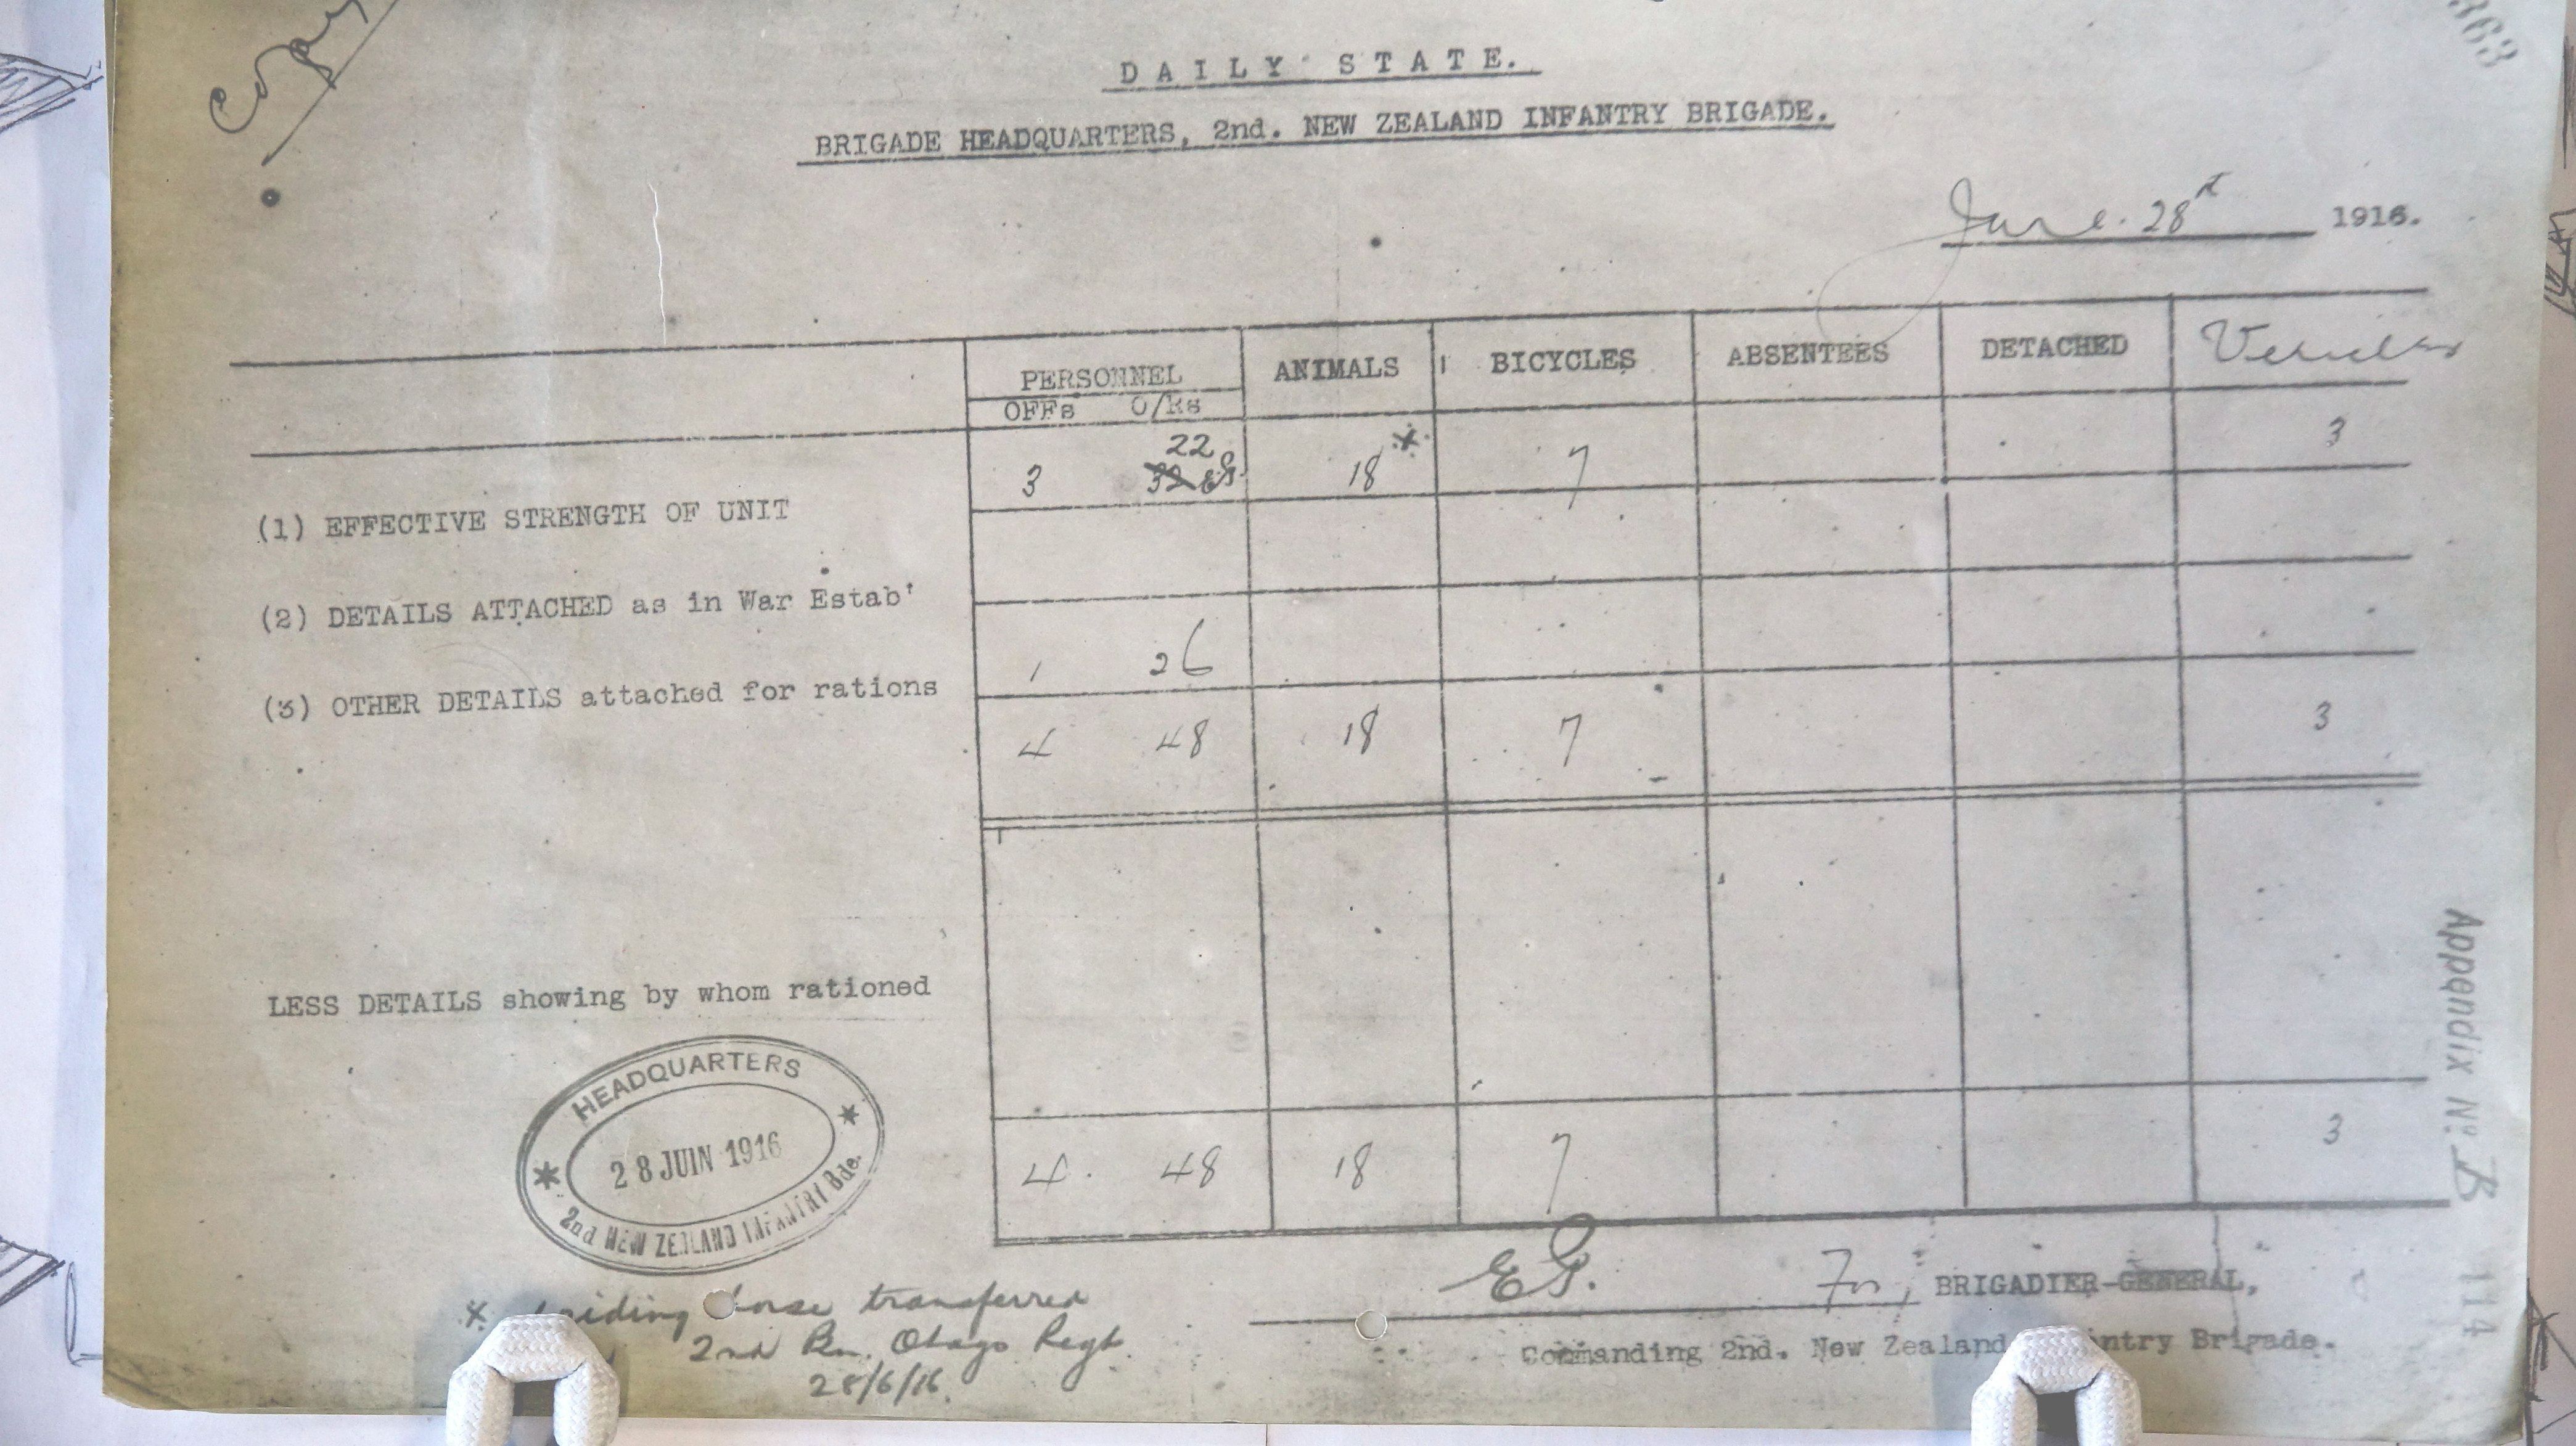 Copy
363
DAILY STATE.
BRIGADE HEADQUARTERS, 2nd. NEW ZEALAND INFANTRY BRIGADE.
June. 28th 1916.
PERSONNEL ANIMALS BICYCLES ABSENTEES DETACHED Vehicles
OFFs O/Rs
22
3 32 EG. 18 * 7 3
(1) EFFECTIVE STRENGTH OF UNIT
(2) DETAILS ATTACHED as in War Estab'
1 26
(3) OTHER DETAILS attached for rations
4 48 18 7 3
LESS DETAILS showing by whom rationed
4. 48 18 7 3
HEADQUARTERS
28 JUIN 1916
2nd NEW ZEALAND INFANTRY Bde.
* riding horse transferred
2nd Bn. Otago Regt.
28/6/16.
EG. For, BRIGADIER-GENERAL,
Commanding 2nd. New Zealand ntry Brigade.
Appendix No. B
114